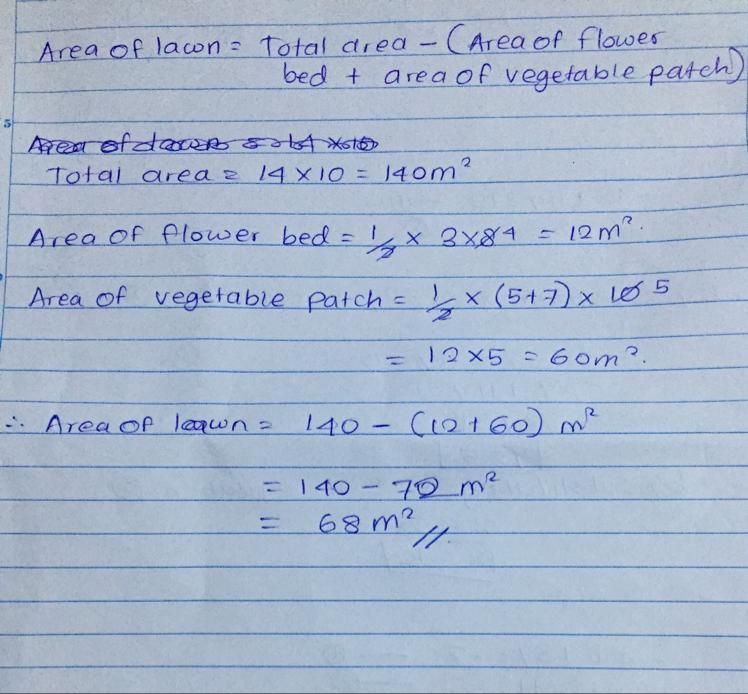 Area of lawn = Total area - (Area of flower
bed + area of vegetable patch)
Total area = 14 x 10 = 140m²
Area of flower bed = 1/2 x 3x84 = 12m².
Area of vegetable patch = 1/2 x (5+7) x 10 5
= 12 x5 = 60m².
∴ Area of lawn = 140 - (12+60) m²
= 140 - 72 m²
= 68 m² //